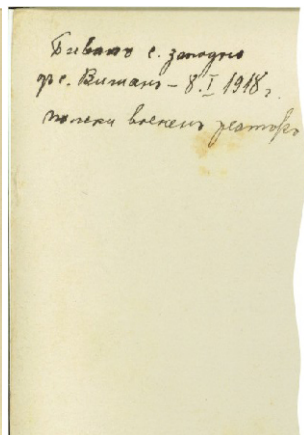 Бивакъ с. западно
с. Витанъ – 8.I 1918 г.
полски воененъ